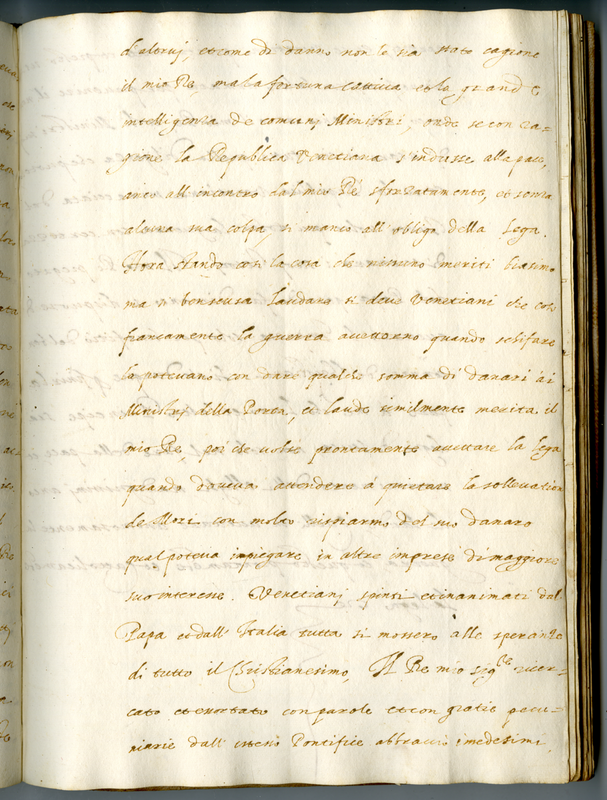 d'altruj, et come di danno non le sia stato cagione
il mio Rè, ma la fortuna cattiva et la grande
intelligenza de comunj Ministri, onde se con ra-
gione la Republica Venetiana s'indusse alla pace,
anco all'incontro dal mio Rè sforzatamente, et senza
alcuna sua colpa, si mancò all'obligo della Lega.
Hora stando così la cosa che nissuno meriti biasimo
ma laudare si deve Venetiani che così
francamente la guerra quando schifare
la potevano con dare qualche somma di danari ai
Ministrj della Porta, et laude similmente merita il
mio Rè, poi che volse prontamente la lega
quando doveva attendere à quietare la sollevation
de Mori con molto rispiarmo del suo danaro
qual poteva impiegare in altre imprese di maggiore
suo interesse. Venetianj spinti et inanimati dal
Papa et dall'Italia tutta si mossero alle speranze
di tutto il Christianesimo, Il Rè mio sig.re ricer-
cato et essortato con parole et con gratie pecu-
niarie dall'istesso Pontefice abbracciò i medesimi